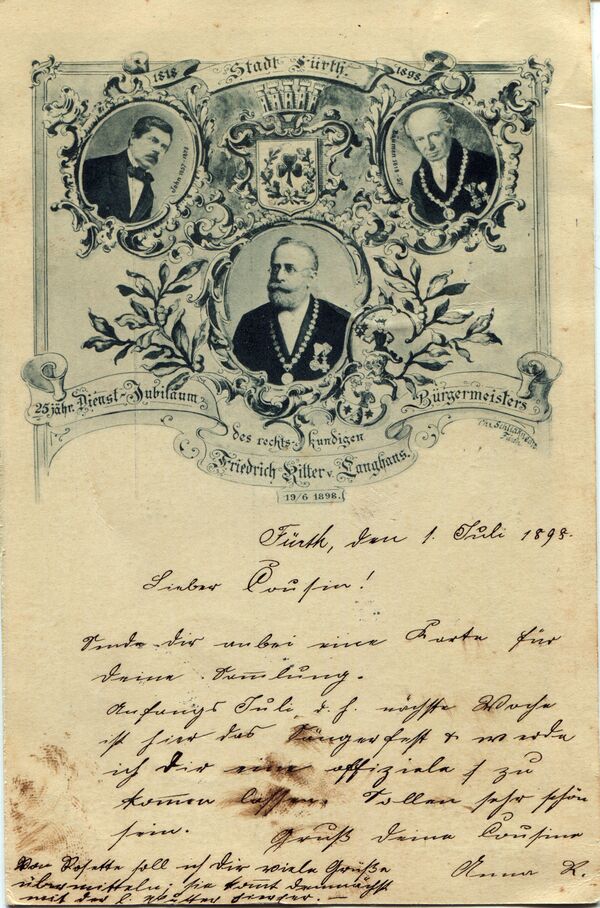 1818
Stadt Fürth.
1898.
25jähr. Dienst-Jubiläum
des rechts-kundigen
Bürgermeisters
Friedrich Ritter v. Langhans.
19/6 1898.
Fürth, den 1. Juli 1898.
Lieber Cousin!
Sende dir anbei eine Karte für
deine Sammlung.
Anfangs Juli d. h. nächste Woche
ist hier das Sängerfest & werde
ich Dir eine offiziele zu
kommen lassen. Sollen sehr schön
sein.
Gruß deine Cousine
Anna R.
Von Rosette soll ich Dir viele Grüße
übermitteln; sie kommt demnächst
mit der l. Mutter hierher. —